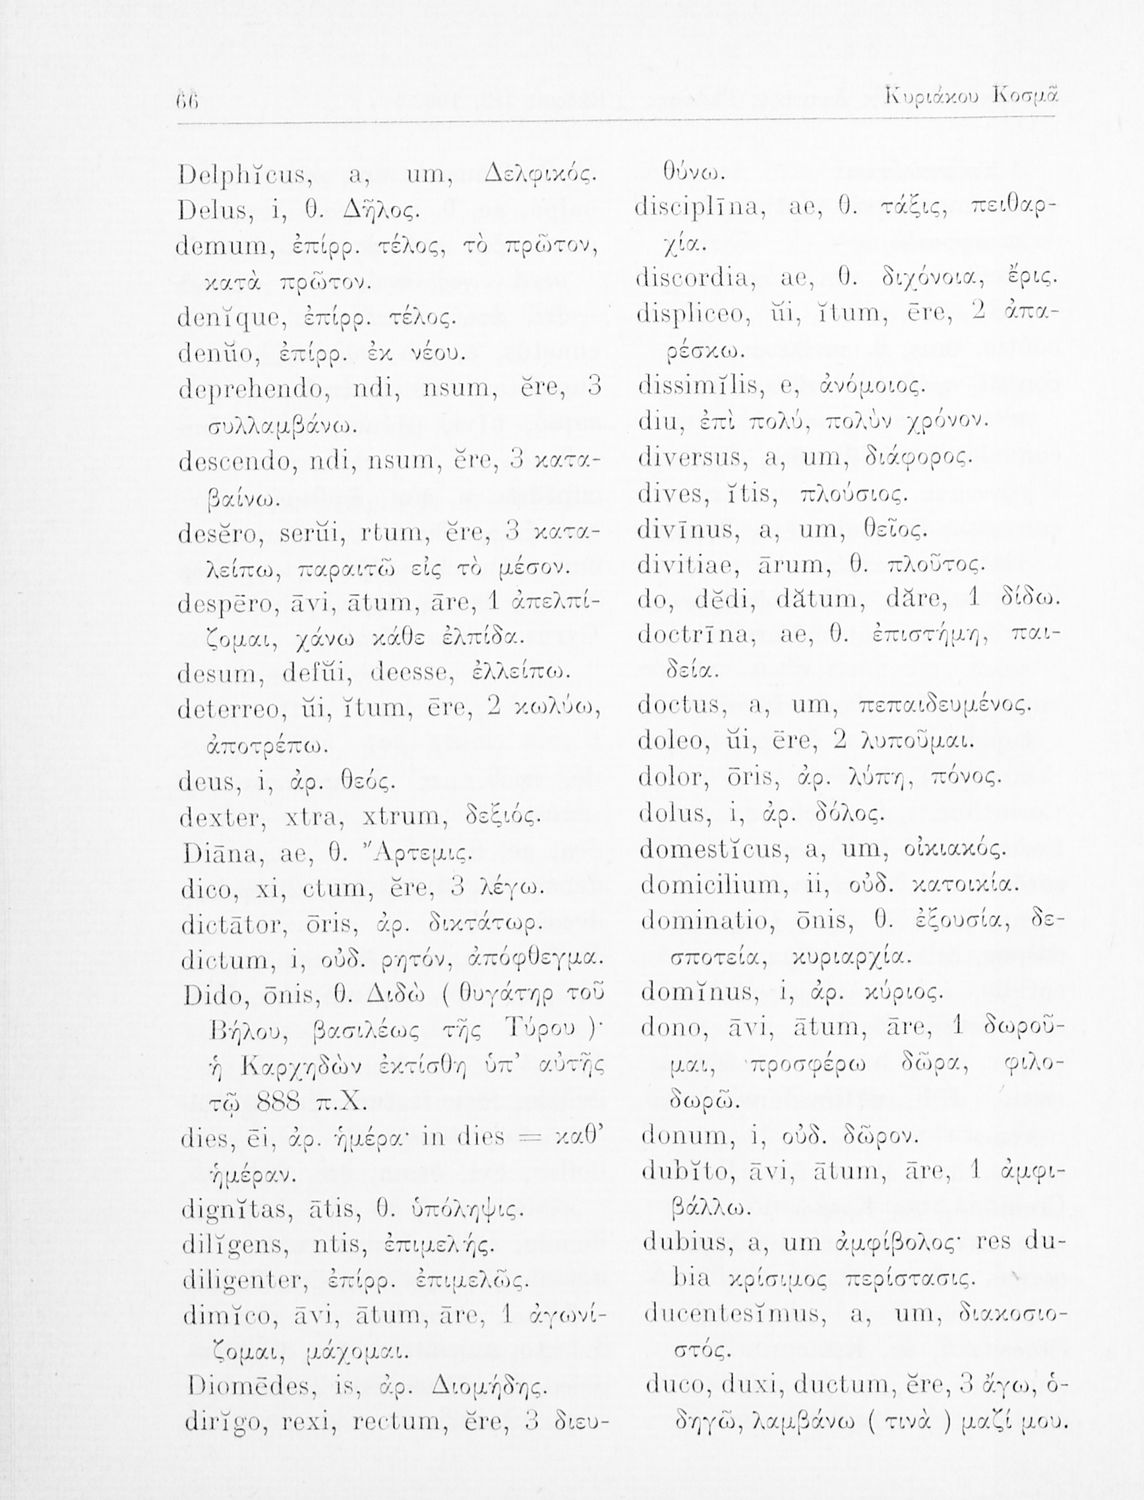 66
Κυριάκου Κοσμᾶ
Delphĭcus, a, um, Δελφικός.
Delus, i, θ. Δῆλος.
demum, ἐπίρρ. τέλος, τὸ πρῶτον,
κατὰ πρῶτον.
denĭque, ἐπίρρ. τέλος.
denŭo, ἐπίρρ. ἐκ νέου.
deprehendo, ndi, nsum, ĕre, 3
συλλαμβάνω.
descendo, ndi, nsum, ĕre, 3 κατα-
βαίνω.
desĕro, serŭi, rtum, ĕre, 3 κατα-
λείπω, παραιτῶ εἰς τὸ μέσον.
despēro, āvi, ātum, āre, 1 ἀπελπί-
ζομαι, χάνω κάθε ἐλπίδα.
desum, defŭi, deesse, ἐλλείπω.
deterreo, ŭi, ĭtum, ēre, 2 κωλύω,
ἀποτρέπω.
deus, i, ἀρ. θεός.
dexter, xtra, xtrum, δεξιός.
Diāna, ae, θ. Ἄρτεμις.
dico, xi, ctum, ĕre, 3 λέγω.
dictātor, ōris, ἀρ. δικτάτωρ.
dictum, i, οὐδ. ρητόν, ἀπόφθεγμα.
Dido, ōnis, θ. Διδὼ ( θυγάτηρ τοῦ
Βήλου, βασιλέως τῆς Τύρου )·
ἡ Καρχηδὼν ἐκτίσθη ὑπ' αὐτῆς
τῷ 888 π.Χ.
dies, ēi, ἀρ. ἡμέρα· in dies = καθ'
ἡμέραν.
dignĭtas, ātis, θ. ὑπόληψις.
dilĭgens, ntis, ἐπιμελής.
diligenter, ἐπίρρ. ἐπιμελῶς.
dimĭco, āvi, ātum, āre, 1 ἀγωνί-
ζομαι, μάχομαι.
Diomēdes, is, ἀρ. Διομήδης.
dirĭgo, rexi, rectum, ĕre, 3 διευ-
θύνω.
disciplīna, ae, θ. τάξις, πειθαρ-
χία.
discordia, ae, θ. διχόνοια, ἔρις.
displiceo, ŭi, ĭtum, ēre, 2 ἀπα-
ρέσκω.
dissimĭlis, e, ἀνόμοιος.
diu, ἐπὶ πολύ, πολὺν χρόνον.
diversus, a, um, διάφορος.
dives, ĭtis, πλούσιος.
divīnus, a, um, θεῖος.
divitiae, ārum, θ. πλοῦτος.
do, dĕdi, dătum, dăre, 1 δίδω.
doctrīna, ae, θ. ἐπιστήμη, παι-
δεία.
doctus, a, um, πεπαιδευμένος.
doleo, ŭi, ēre, 2 λυποῦμαι.
dolor, ōris, ἀρ. λύπη, πόνος.
dolus, i, ἀρ. δόλος.
domestĭcus, a, um, οἰκιακός.
domicilium, ii, οὐδ. κατοικία.
dominatio, ōnis, θ. ἐξουσία, δε-
σποτεία, κυριαρχία.
domĭnus, i, ἀρ. κύριος.
dono, āvi, ātum, āre, 1 δωροῦ-
μαι, προσφέρω δῶρα, φιλο-
δωρῶ.
donum, i, οὐδ. δῶρον.
dubĭto, āvi, ātum, āre, 1 ἀμφι-
βάλλω.
dubius, a, um ἀμφίβολος· res du-
bia κρίσιμος περίστασις.
ducentesĭmus, a, um, διακοσιο-
στός.
duco, duxi, ductum, ĕre, 3 ἄγω, ὁ-
δηγῶ, λαμβάνω ( τινὰ ) μαζί μου.